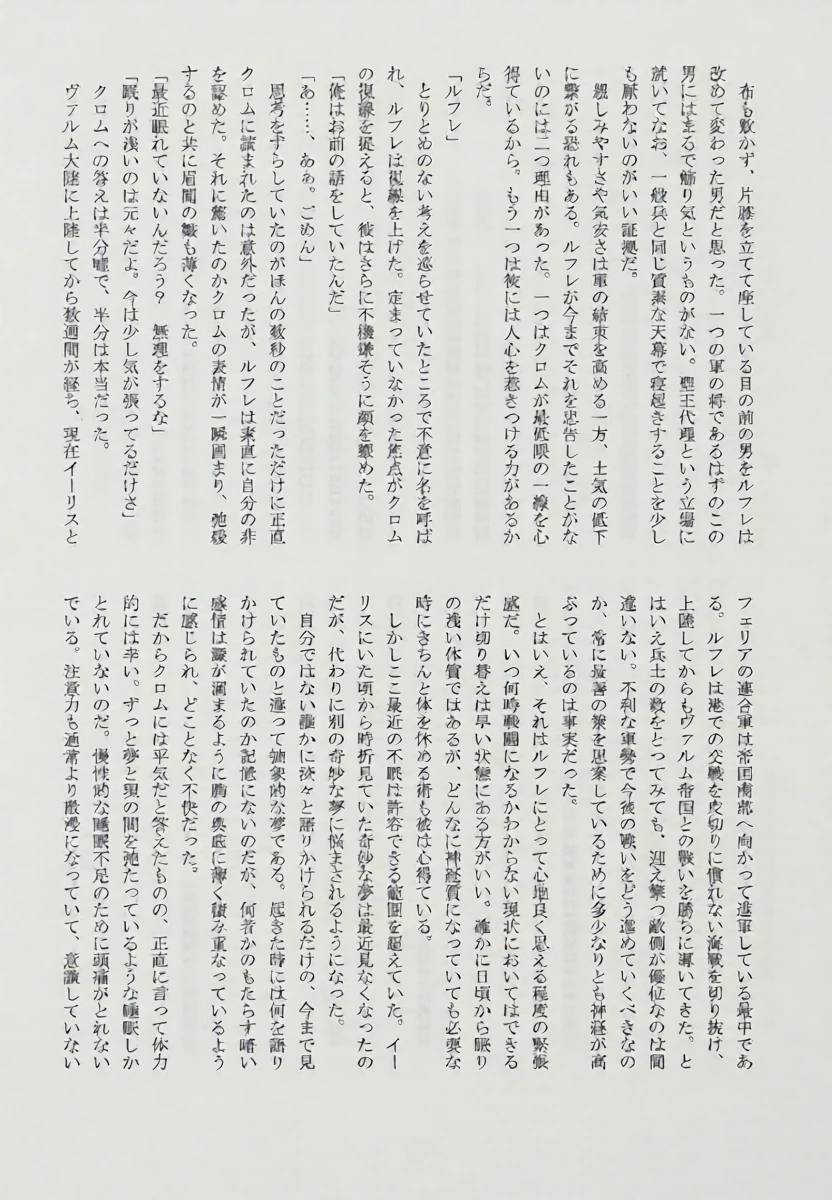 布も敷かず、片膝を立てて座している目の前の男をルフレは
改めて変わった男だと思った。一つの軍の将であるはずのこの
男にはまるで飾り気というものがない。聖王代理という立場に
就いてなお、一般兵と同じ質素な天幕で寝起きすることを少し
も厭わないのがいい証拠だ。
親しみやすさや気安さは軍の結束を高める一方、士気の低下
に繋がる恐れもある。ルフレが今までそれを忠告したことがな
いのには二つ理由があった。一つはクロムが最低限の一線を心
得ているから。もう一つは彼には人心を惹きつける力があるか
らだ。
「ルフレ」
とりとめのない考えを巡らせていたところで不意に名を呼ば
れ、ルフレは視線を上げた。定まっていなかった焦点がクロム
の視線を捉えると、彼はさらに不機嫌そうに顔を顰めた。
「俺はお前の話をしていたんだ」
「あ……、ああ。ごめん」
思考をずらしていたのがほんの数秒のことだっただけに正直
クロムに読まれたのは意外だったが、ルフレは素直に自分の非
を認めた。それに驚いたのかクロムの表情が一瞬固まり、弛緩
するのと共に眉間の皺も薄くなった。
「最近眠れていないんだろう？　無理をするな」
「眠りが浅いのは元々だよ。今は少し気が張ってるだけさ」
クロムへの答えは半分嘘で、半分は本当だった。
ヴァルム大陸に上陸してから数週間が経ち、現在イーリスと
フェリアの連合軍は帝国南部へ向かって進軍している最中であ
る。ルフレは港での交戦を皮切りに慣れない海戦を切り抜け、
上陸してからもヴァルム帝国との戦いを勝ちに導いてきた。と
はいえ兵士の数をとってみても、迎え撃つ敵側が優位なのは間
違いない。不利な軍勢で今後の戦いをどう進めていくべきなの
か、常に最善の策を思案しているために多少なりとも神経が高
ぶっているのは事実だった。
とはいえ、それはルフレにとって心地良く思える程度の緊張
感だ。いつ何時戦闘になるかわからない現状においてはできる
だけ切り替えは早い状態にある方がいい。確かに日頃から眠り
の浅い体質ではあるが、どんなに神経質になっていても必要な
時にきちんと体を休める術も彼は心得ている。
しかしここ最近の不眠は許容できる範囲を超えていた。イー
リスにいた頃から時折見ていた奇妙な夢は最近見なくなったの
だが、代わりに別の奇妙な夢に悩まされるようになった。
自分ではない誰かに淡々と語りかけられるだけの、今まで見
ていたものと違って抽象的な夢である。起きた時には何を語り
かけられていたのか記憶にないのだが、何者かのもたらす暗い
感情は澱が溜まるように胸の奥底に薄く積み重なっているよう
に感じられ、どことなく不快だった。
だからクロムには平気だと答えたものの、正直に言って体力
的には辛い。ずっと夢と現の間を弛たっているような睡眠しか
とれていないのだ。慢性的な睡眠不足のために頭痛がとれない
でいる。注意力も通常より散漫になっていて、意識していない